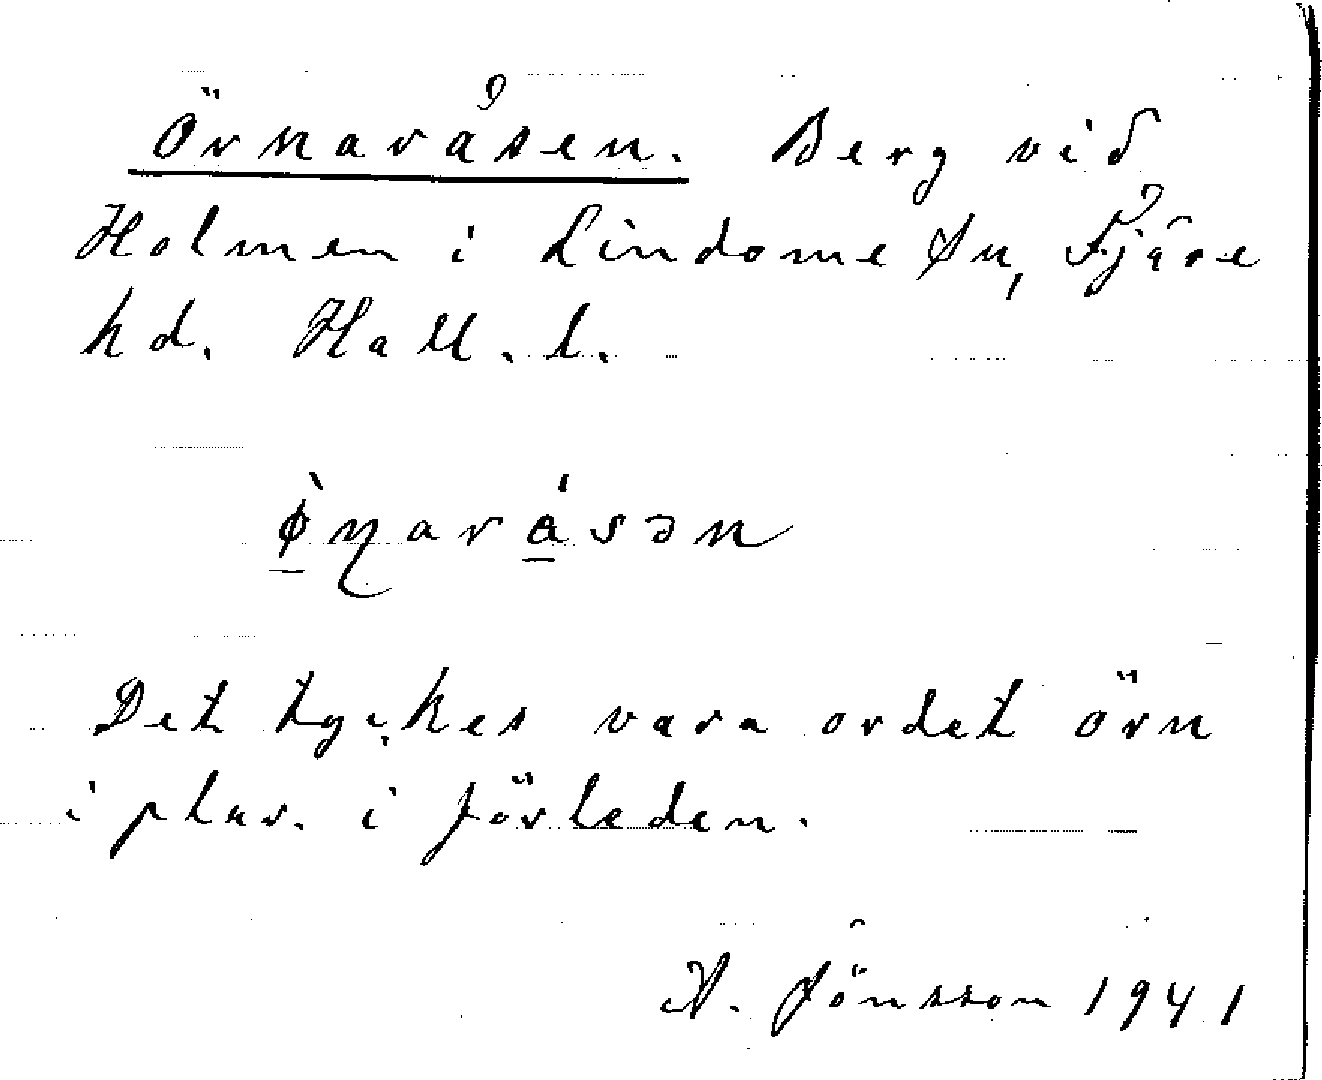 Örnaråsen. Berg vid
Holmen i Lindome sn, Fjäre
hd. Hall. l.
ø̀ɳaråsən
Det tyckes vara ordet örn
i plur. i förleden.
Jönsson 1941